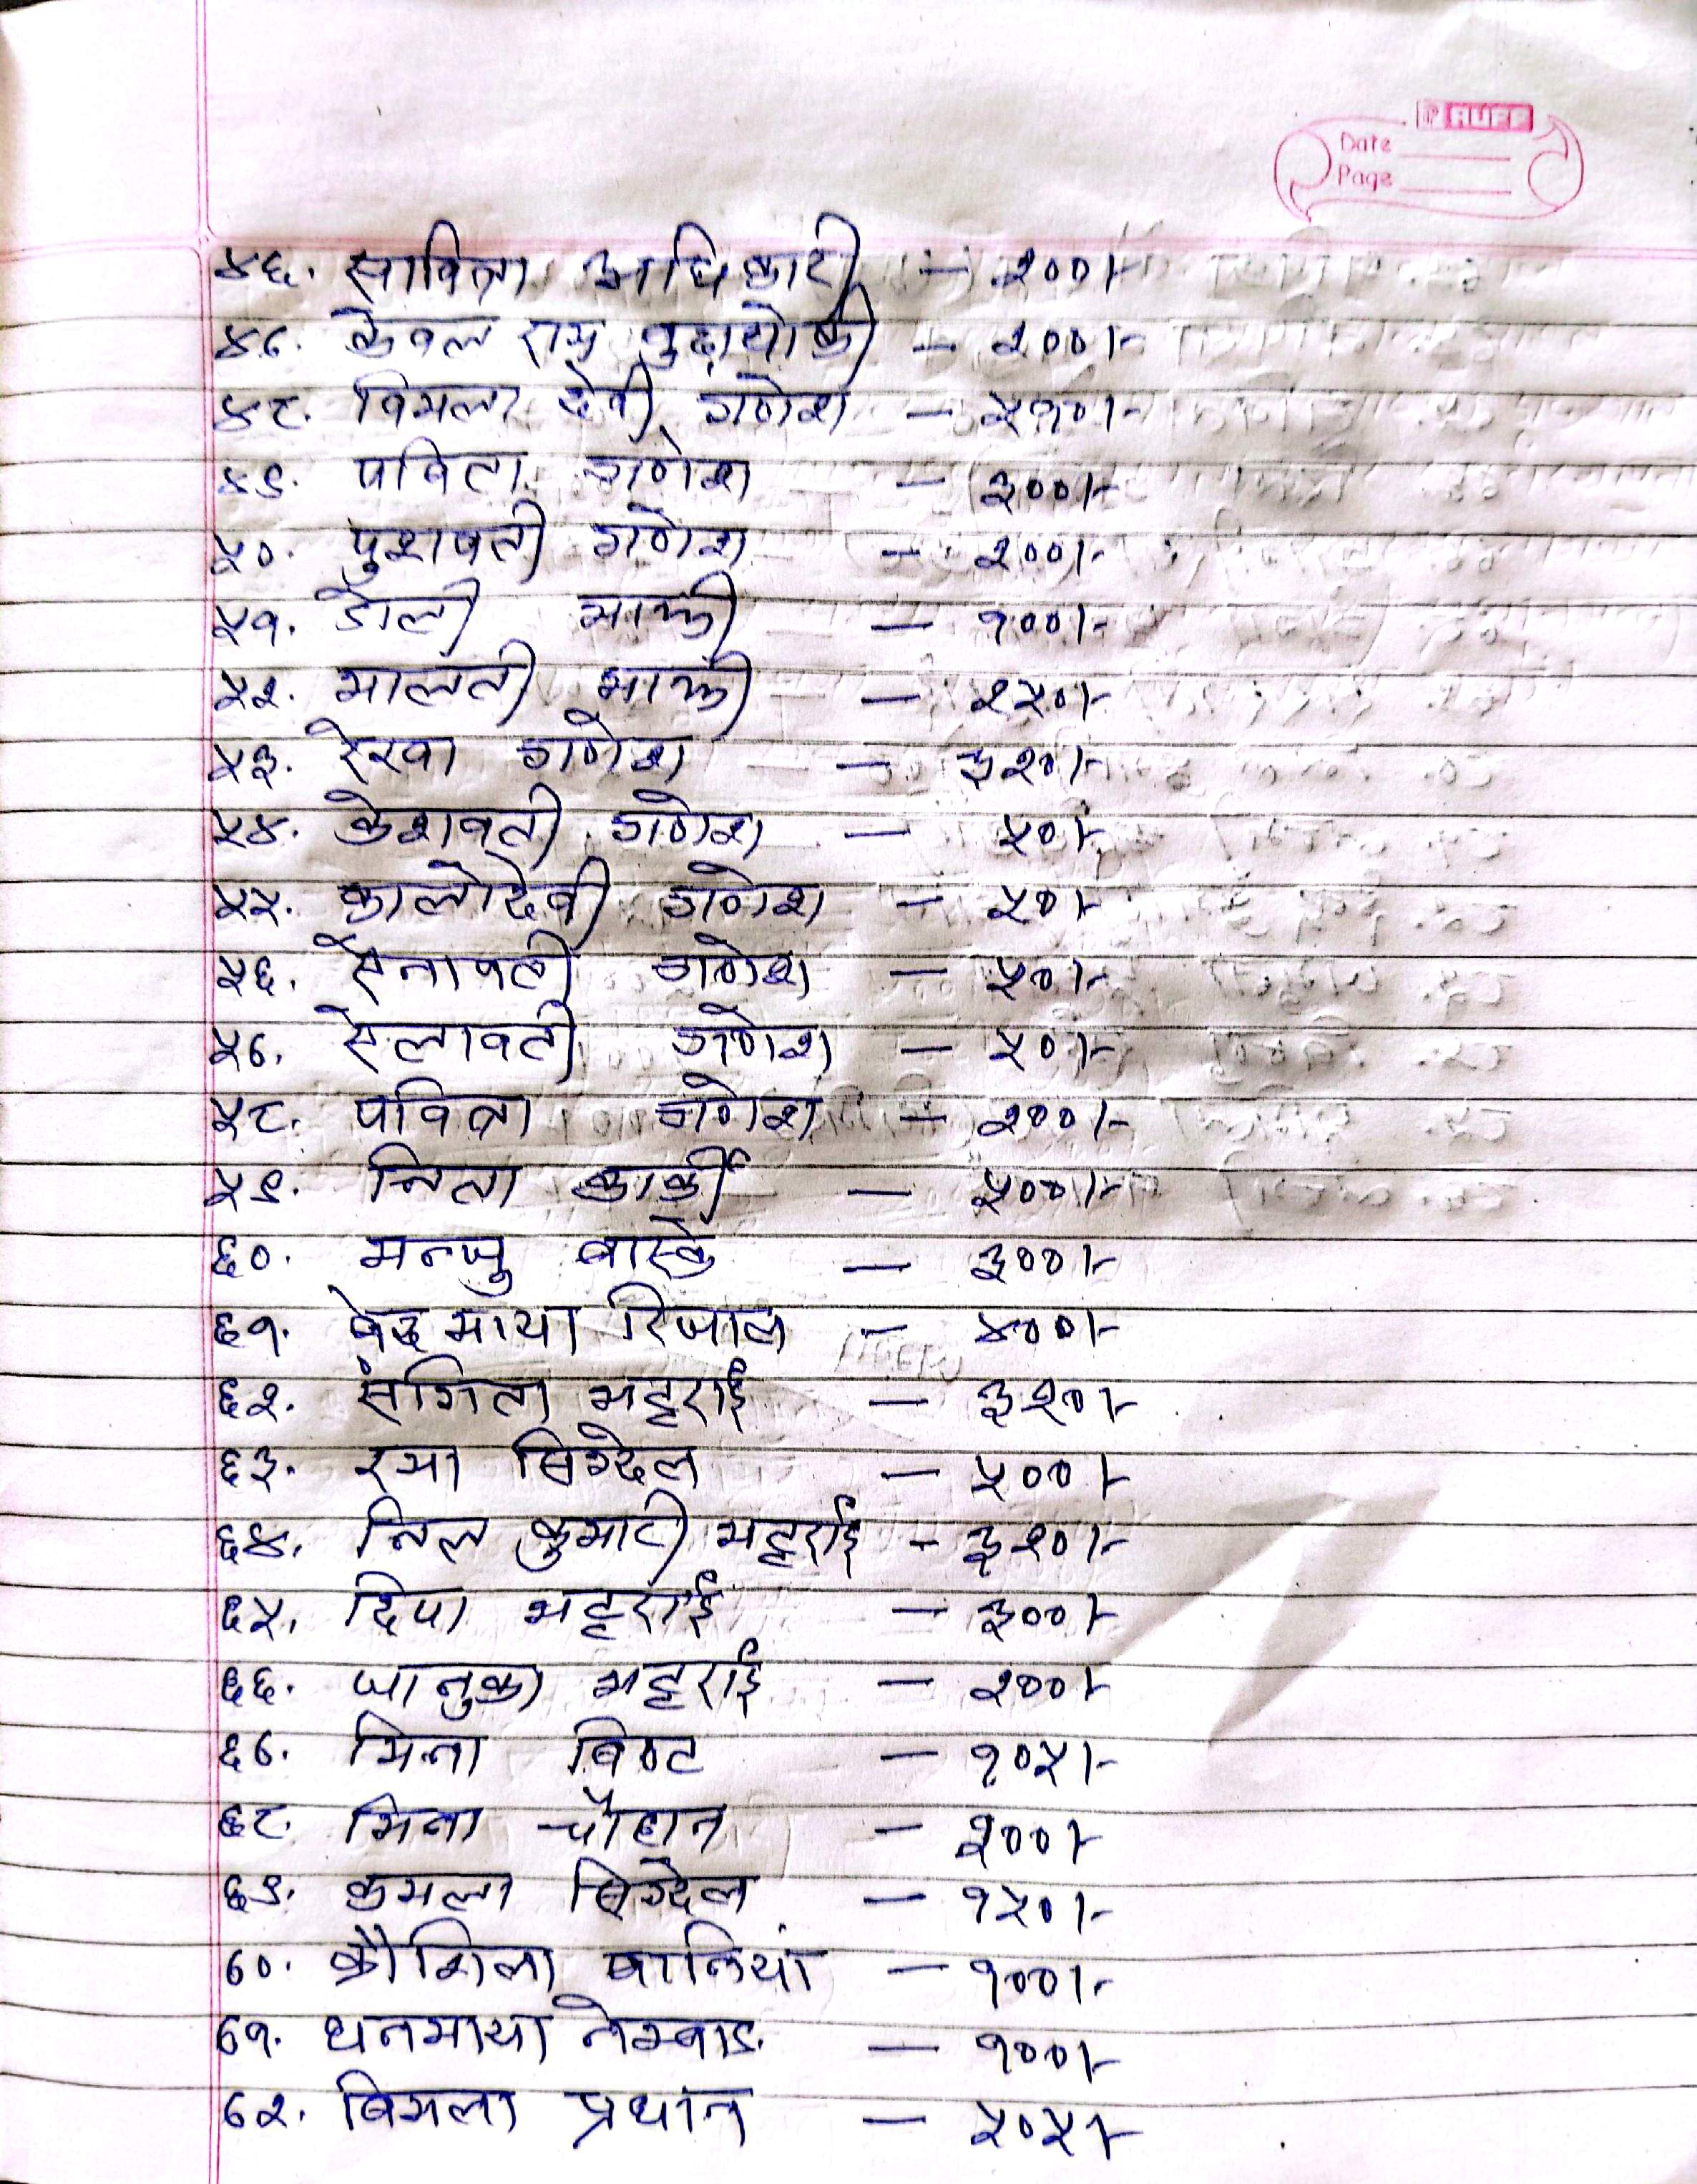 RUFF
Date
Page
४६. सावित्रा अधिकारी - २००/-
४७. केवल राम बुढाथोकी - २००/-
४८. विमला देवी गणेश - ५१०/-
४९. पविता गणेश - ३००/-
५०. पुशावती गणेश - २००/-
५१. डोली माझी - १००/-
५२. मालती माझी - २५०/-
५३. रेखा गणेश - ३२०/-
५४. केशवती गणेश - ५०/-
५५. कालोदेवी गणेश - ५०/-
५६. सैनावती गणेश - ५०/-
५७. सैलावती गणेश - ५०/-
५८. पवित्रा गणेश - २००/-
५९. निता कार्की - ५००/-
६०. मन्जु बास्के - ३००/-
६१. बेदमाया रिजाल - ४००/-
६२. संगिता भट्टराई - ३२०/-
६३. रमा सिग्देल - ५००/-
६४. निल कुमारी भट्टराई - ३२०/-
६५. दिपा भट्टराई - ३००/-
६६. जानुका भट्टराई - २००/-
६७. मिना बिष्ट - १०५/-
६८. मिना चौहान - २००/-
६९. कमला सिग्देल - १५०/-
७०. कौशिला वालियां - १००/-
७१. धनमाया नेम्वाङ - १००/-
७२. बिमला प्रधान - ५०५/-